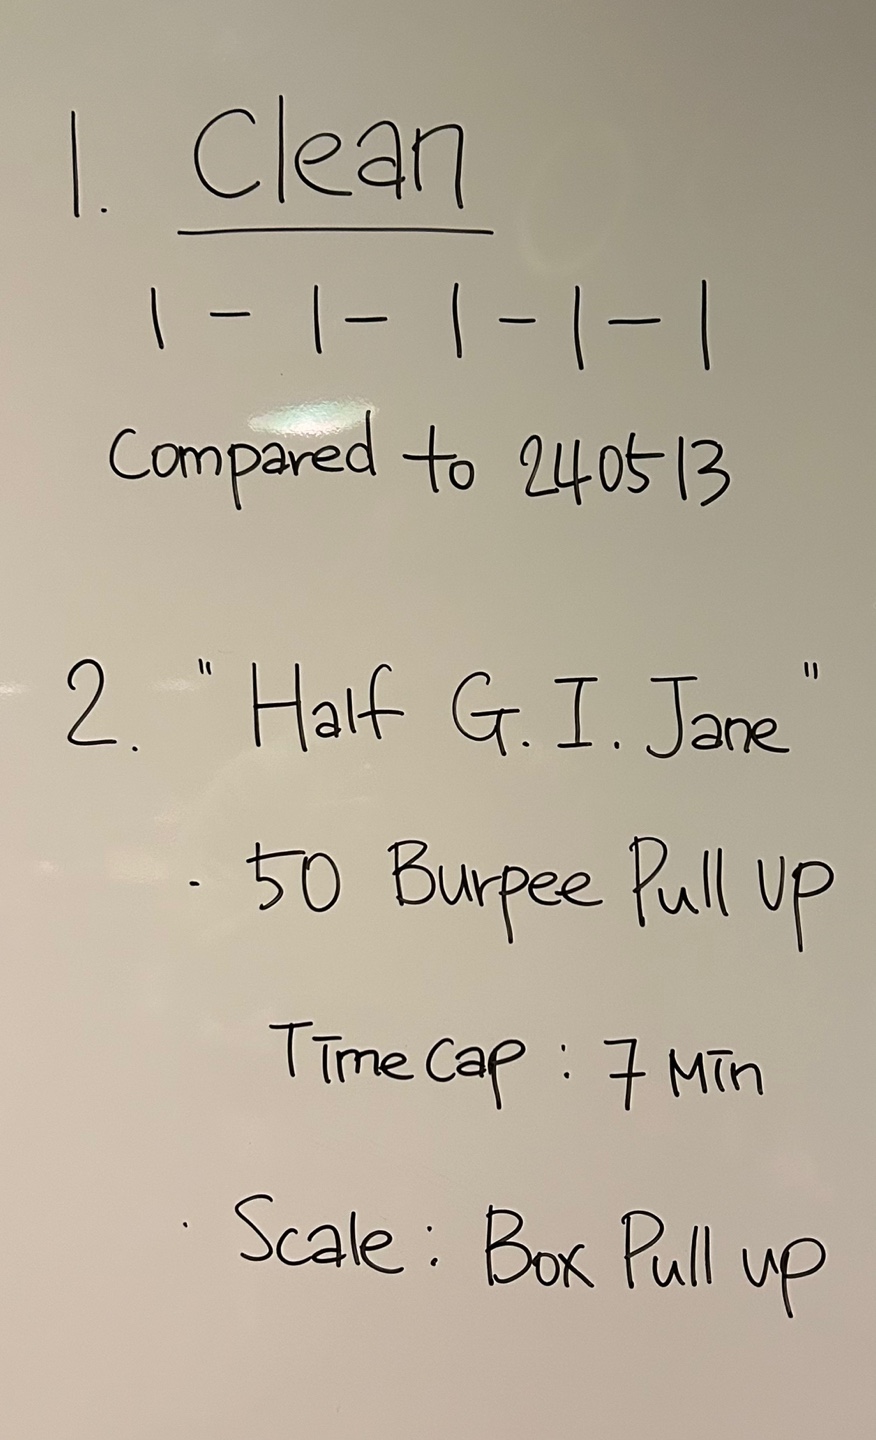 1. Clean
1 - 1 - 1 - 1 - 1
Compared to 240513
2. "Half G. I. Jane"
· 50 Burpee Pull up
Time Cap : 7 Min
· Scale : Box Pull up